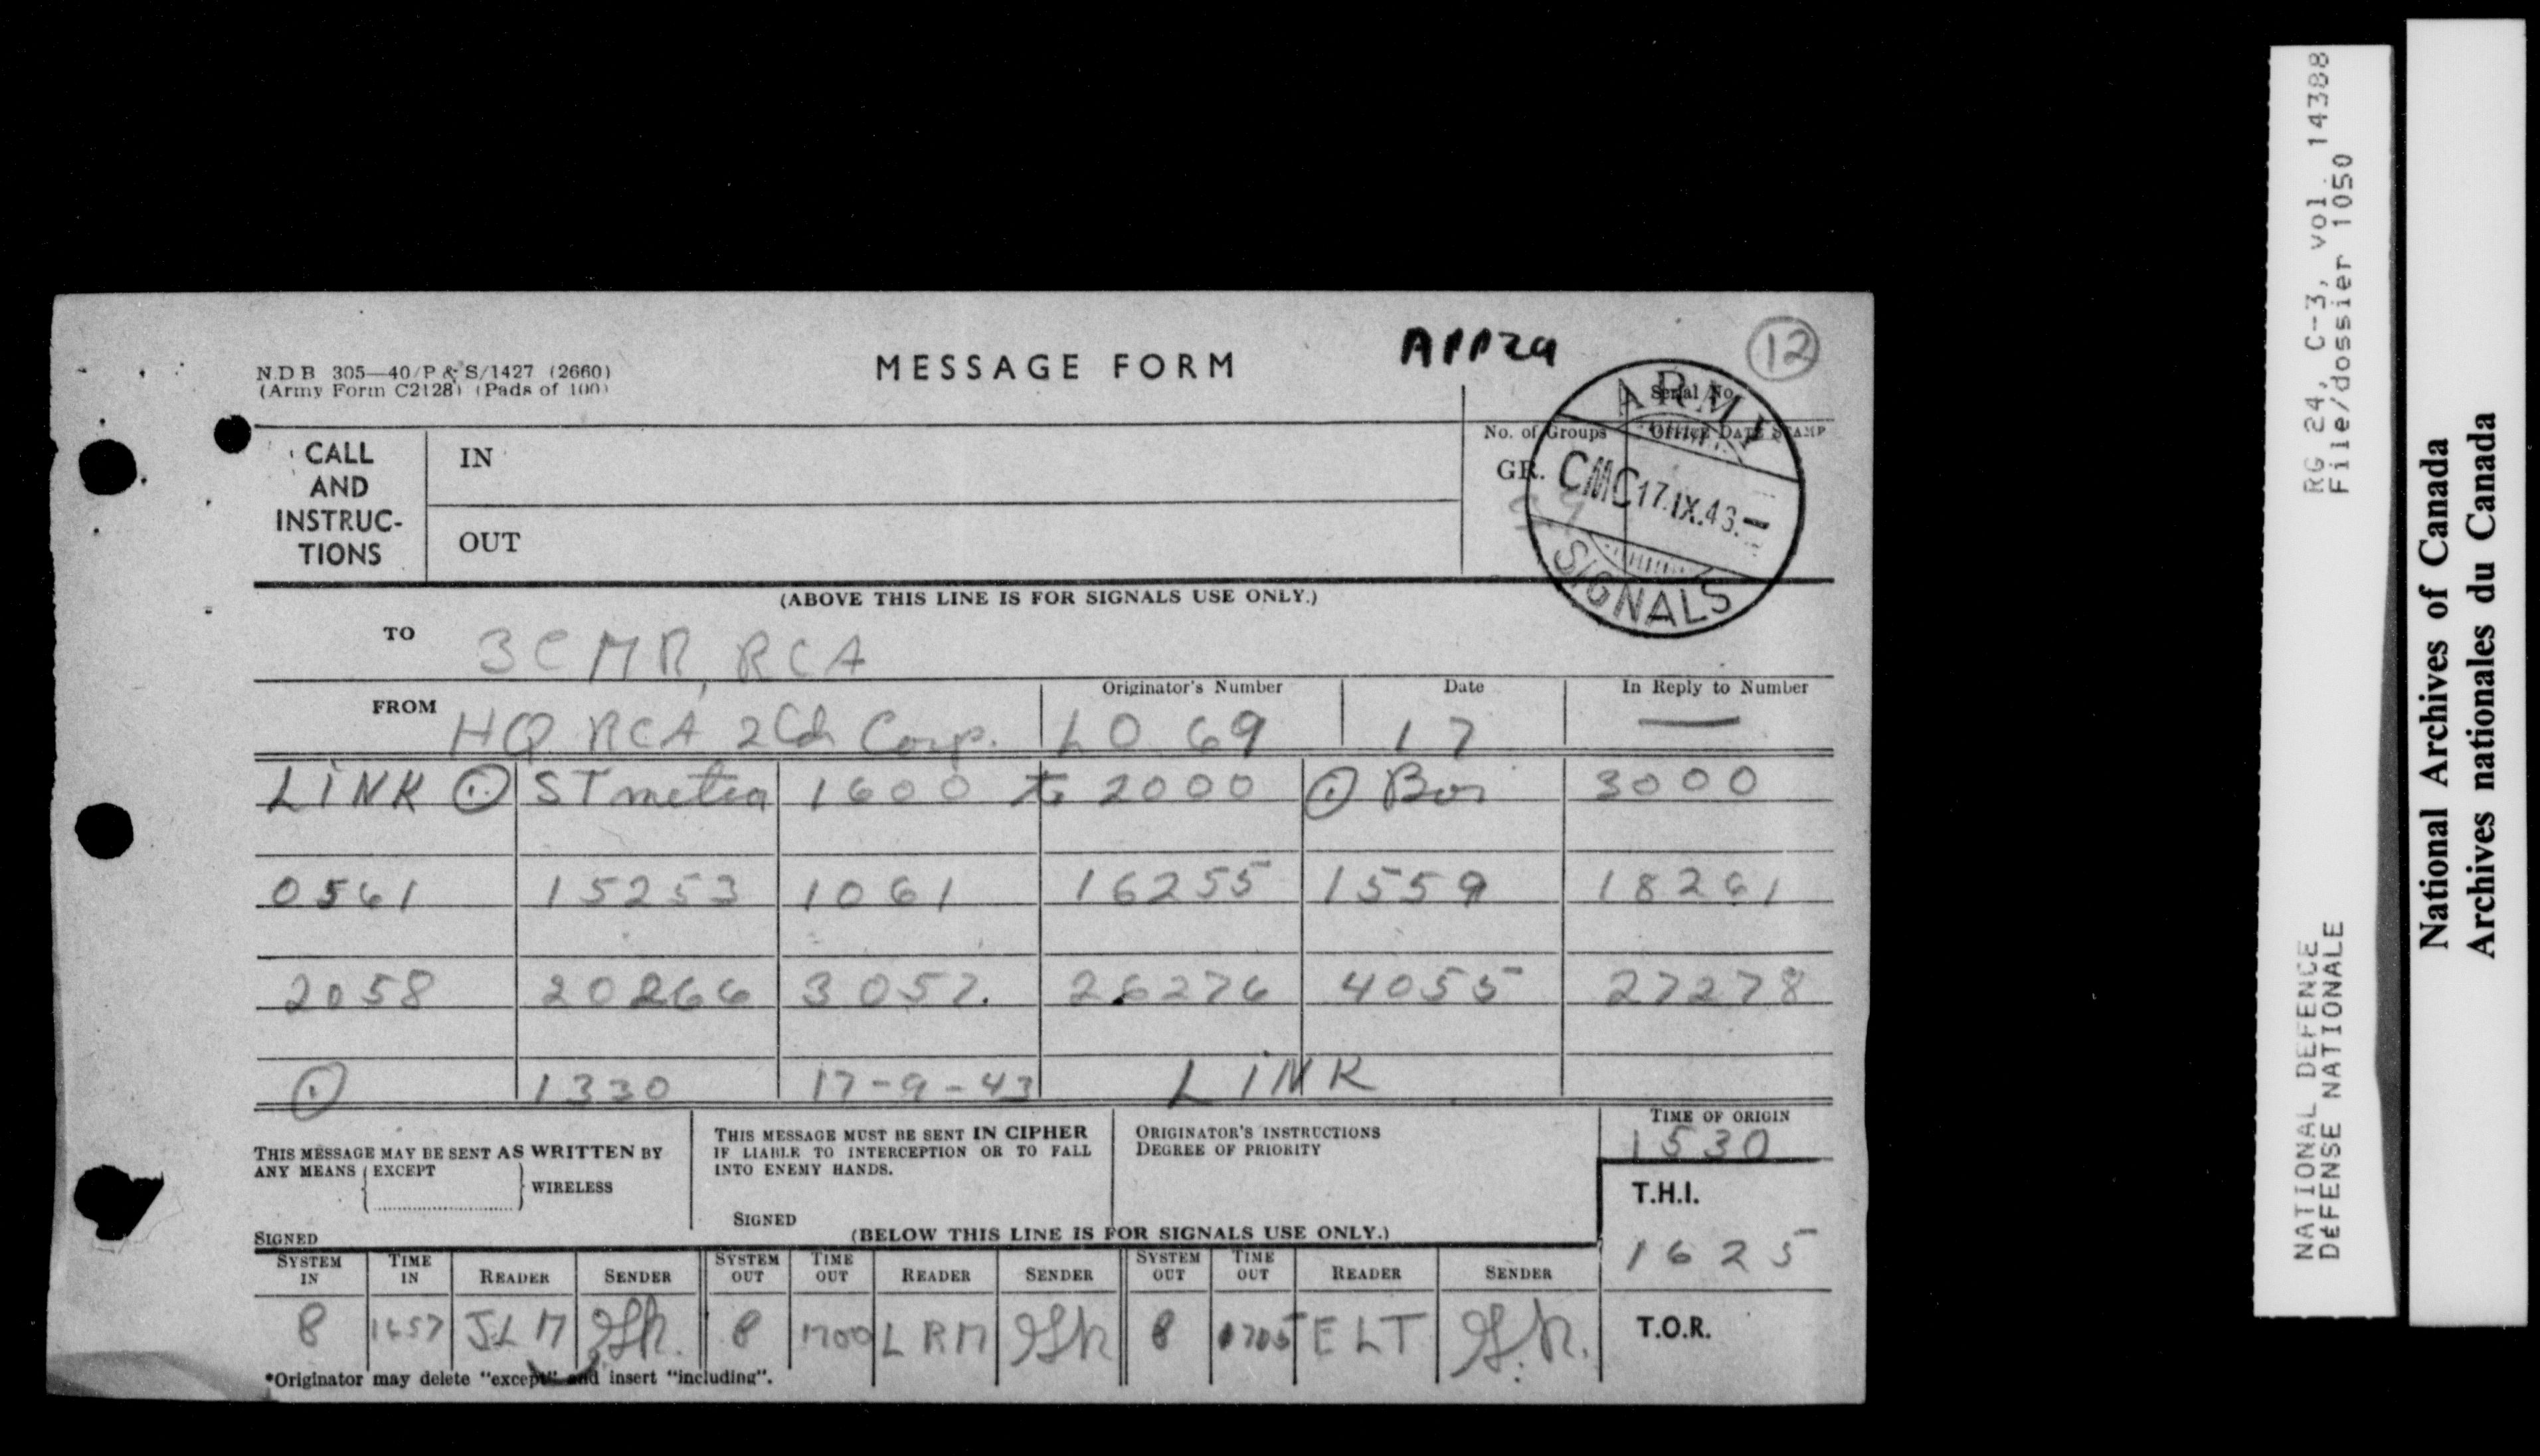 APP 29
12
N.D.B 305—40/P & S/1427 (2660)
(Army Form C2128) (Pads of 100)
MESSAGE FORM
Serial No.
CALL AND INSTRUC-TIONS
IN
OUT
No. of Groups
GR.
Office Date Stamp
ARMY
CMC 17.IX.43.—
SIGNALS
(ABOVE THIS LINE IS FOR SIGNALS USE ONLY.)
TO 3 C M R, RCA
FROM HQ RCA 2 Cdn Corps. Originator's Number LO 69 Date 17 In Reply to Number —
LINK ⊙ ST meteo 1600 to 2000 ⊙ 3000
0561 15253 1061 16255 1559 18261
2058 20266 3057. 26276 4055 27278
⊙ 1330 17-9-43 LINK
THIS MESSAGE MAY BE SENT AS WRITTEN BY
ANY MEANS { EXCEPT } WIRELESS
SIGNED
THIS MESSAGE MUST BE SENT IN CIPHER
IF LIABLE TO INTERCEPTION OR TO FALL
INTO ENEMY HANDS.
SIGNED
ORIGINATOR'S INSTRUCTIONS
DEGREE OF PRIORITY
TIME OF ORIGIN
1530
T.H.I.
1625
T.O.R.
(BELOW THIS LINE IS FOR SIGNALS USE ONLY.)
SYSTEM IN TIME IN READER SENDER SYSTEM OUT TIME OUT READER SENDER SYSTEM OUT TIME OUT READER SENDER
8 1657 JLM 8 1700 LRM 8 1705 ELT
*Originator may delete "except" and insert "including".
RG 24, C-3, vol. 14388
File/dossier 1050
NATIONAL DEFENCE
DÉFENSE NATIONALE
National Archives of Canada
Archives nationales du Canada